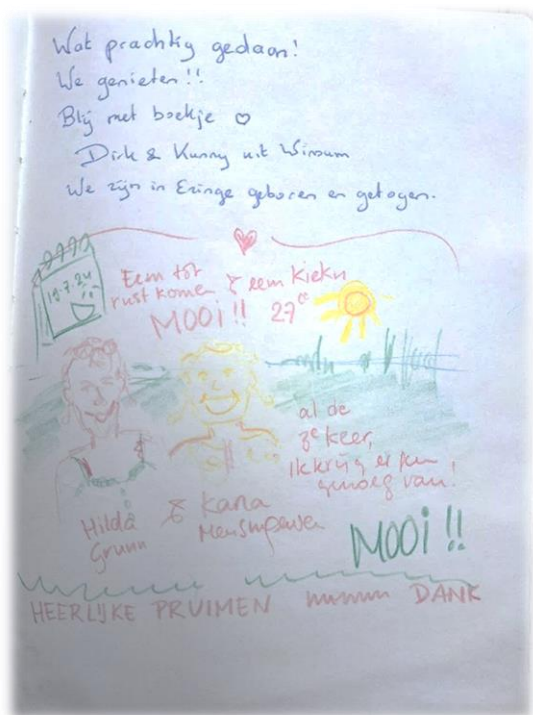 Wat prachtig gedaan!
We genieten!!
Blij met boekje ♡
Dirk & Kunny uit Winsum
We zijn in Ezinge geboren en getogen.
19.7.24
Eem tot
rust komen & eem kiekn
MOOI!! 27°C
al de
7e keer,
ik krijg er
genoeg van!
Hilda & Karla
Grunn
MOOI!!
HEERLIJKE PRUIMEN mmmm DANK